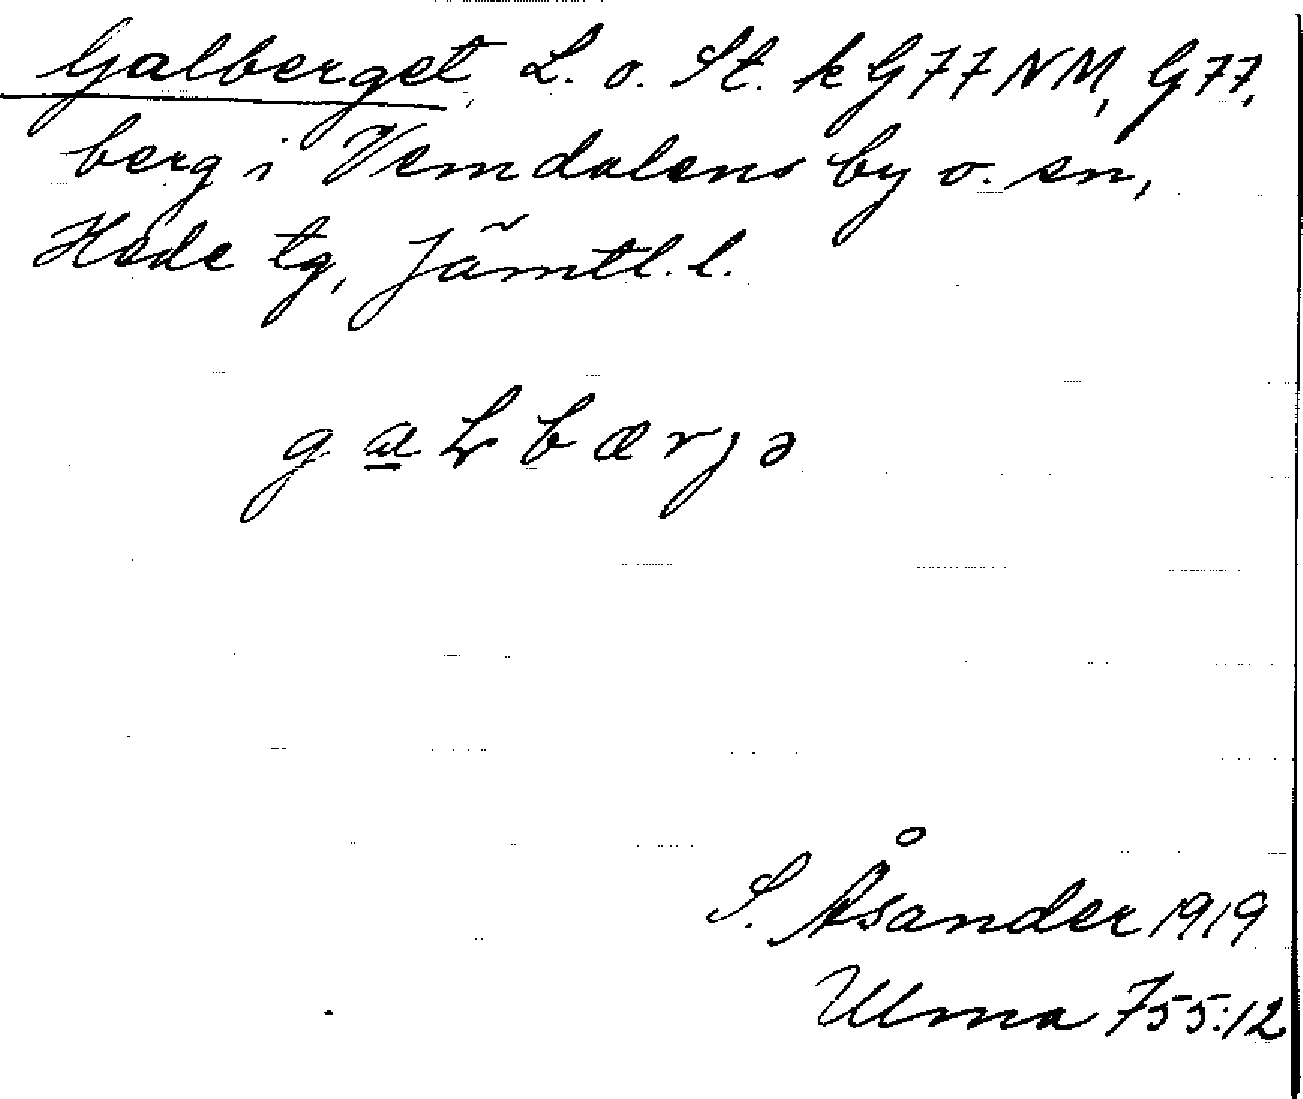 Galberget, L. o. St. k G77NM, G77,
berg i Vemdalens by o. sn,
Hede tg, Jämtl. l.
g a L b æ r j ə
S. Åsander 1919
Ulma 755:12